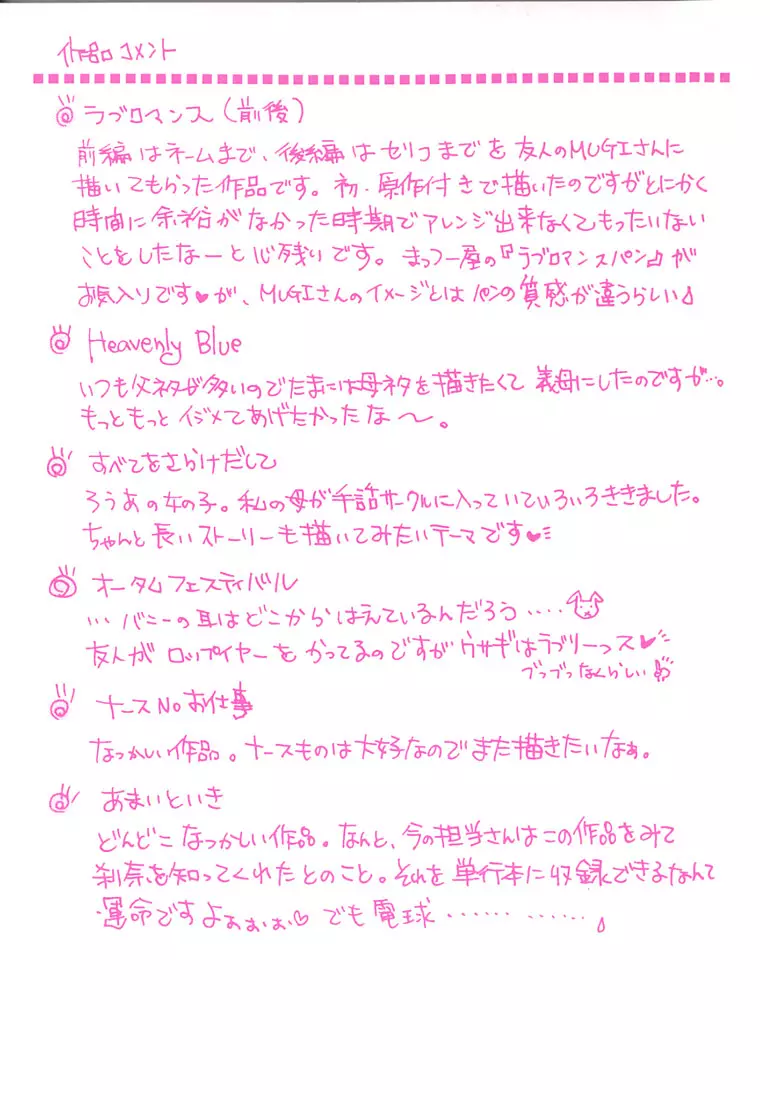 作品コメント
ラブロマンス(前後)
前編はネームまで、後編はセリフまでを友人のMUGIさんに
描いてもらった作品です。初・原作付きで描いたのですがとにかく
時間に余裕がなかった時期でアレンジ出来なくてもったいない
ことをしたなーと心残りです。まっつー屋の『ラブロマンスパン』が
お気入りです♥が、MUGIさんのイメージとはパンの質感が違うらしい
Heavenly Blue
いつも父ネタが多いのでたまには母ネタを描きたくて義母にしたのですが…。
もっともっとイジメてあげたかったな〜。
すべてをさらけだして
ろうあの女の子。私の母が手話サークルに入っていていろいろききました。
ちゃんと長いストーリーも描いてみたいテーマです♥
オータムフェスティバル
…バニーの耳はどこからはえているんだろう‥‥
友人がロップイヤーをかってるのですがウサギはラブリーっス♥
ブッブッなくらしい
ナースNoお仕事
なつかしい作品。ナースものは大好なのでまた描きたいなぁ。
あまいといき
どんどこなつかしい作品。なんと、今の担当さんはこの作品をみて
刹奈を知ってくれたとのこと。それを単行本に収録できるなんて
運命ですよぉぉぉ♡でも電球…… ……